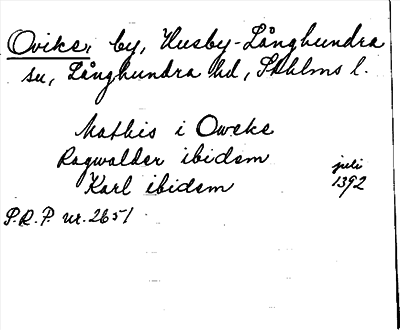 Ovike, by, Husby-Långhundra
sn, Långhundra hd, Sthlms l.
Mathis i Oweke
Ragwalder ibidem
juli
Karl ibidem 1392
P.R.P. nr. 2651